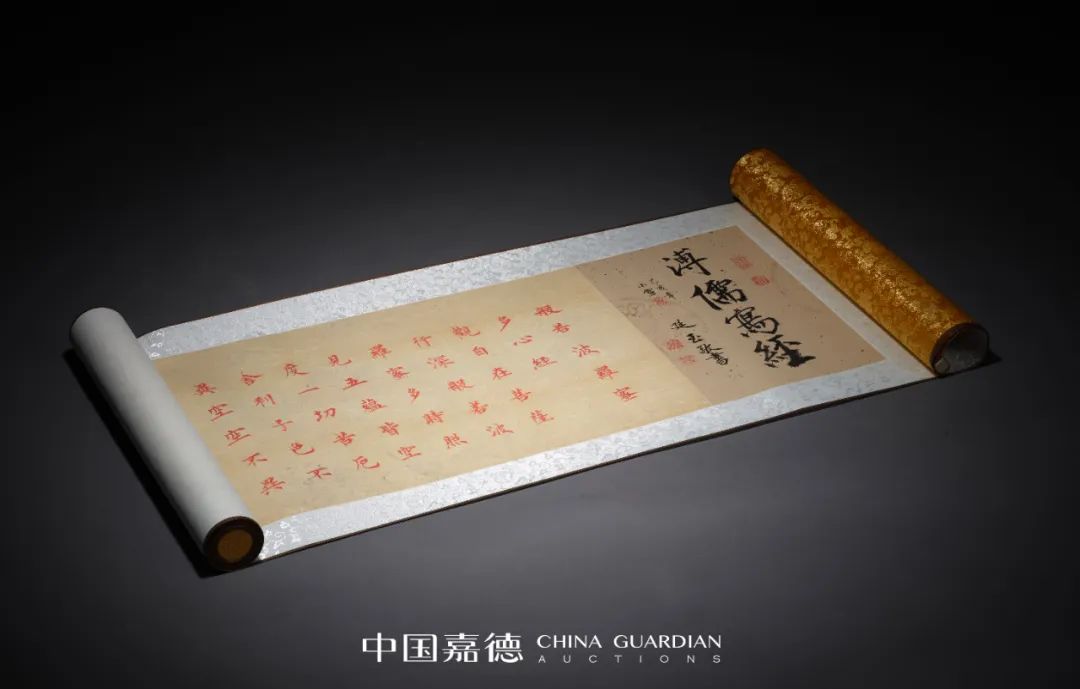 溥儒寫經
小雪
敬書
般若波羅蜜
多心經
觀自在菩薩
行深般若波
羅蜜多時照
見五蘊皆空
度一切苦厄
舍利子色不
異空空不異
中国嘉德 CHINA GUARDIAN
AUCTIONS